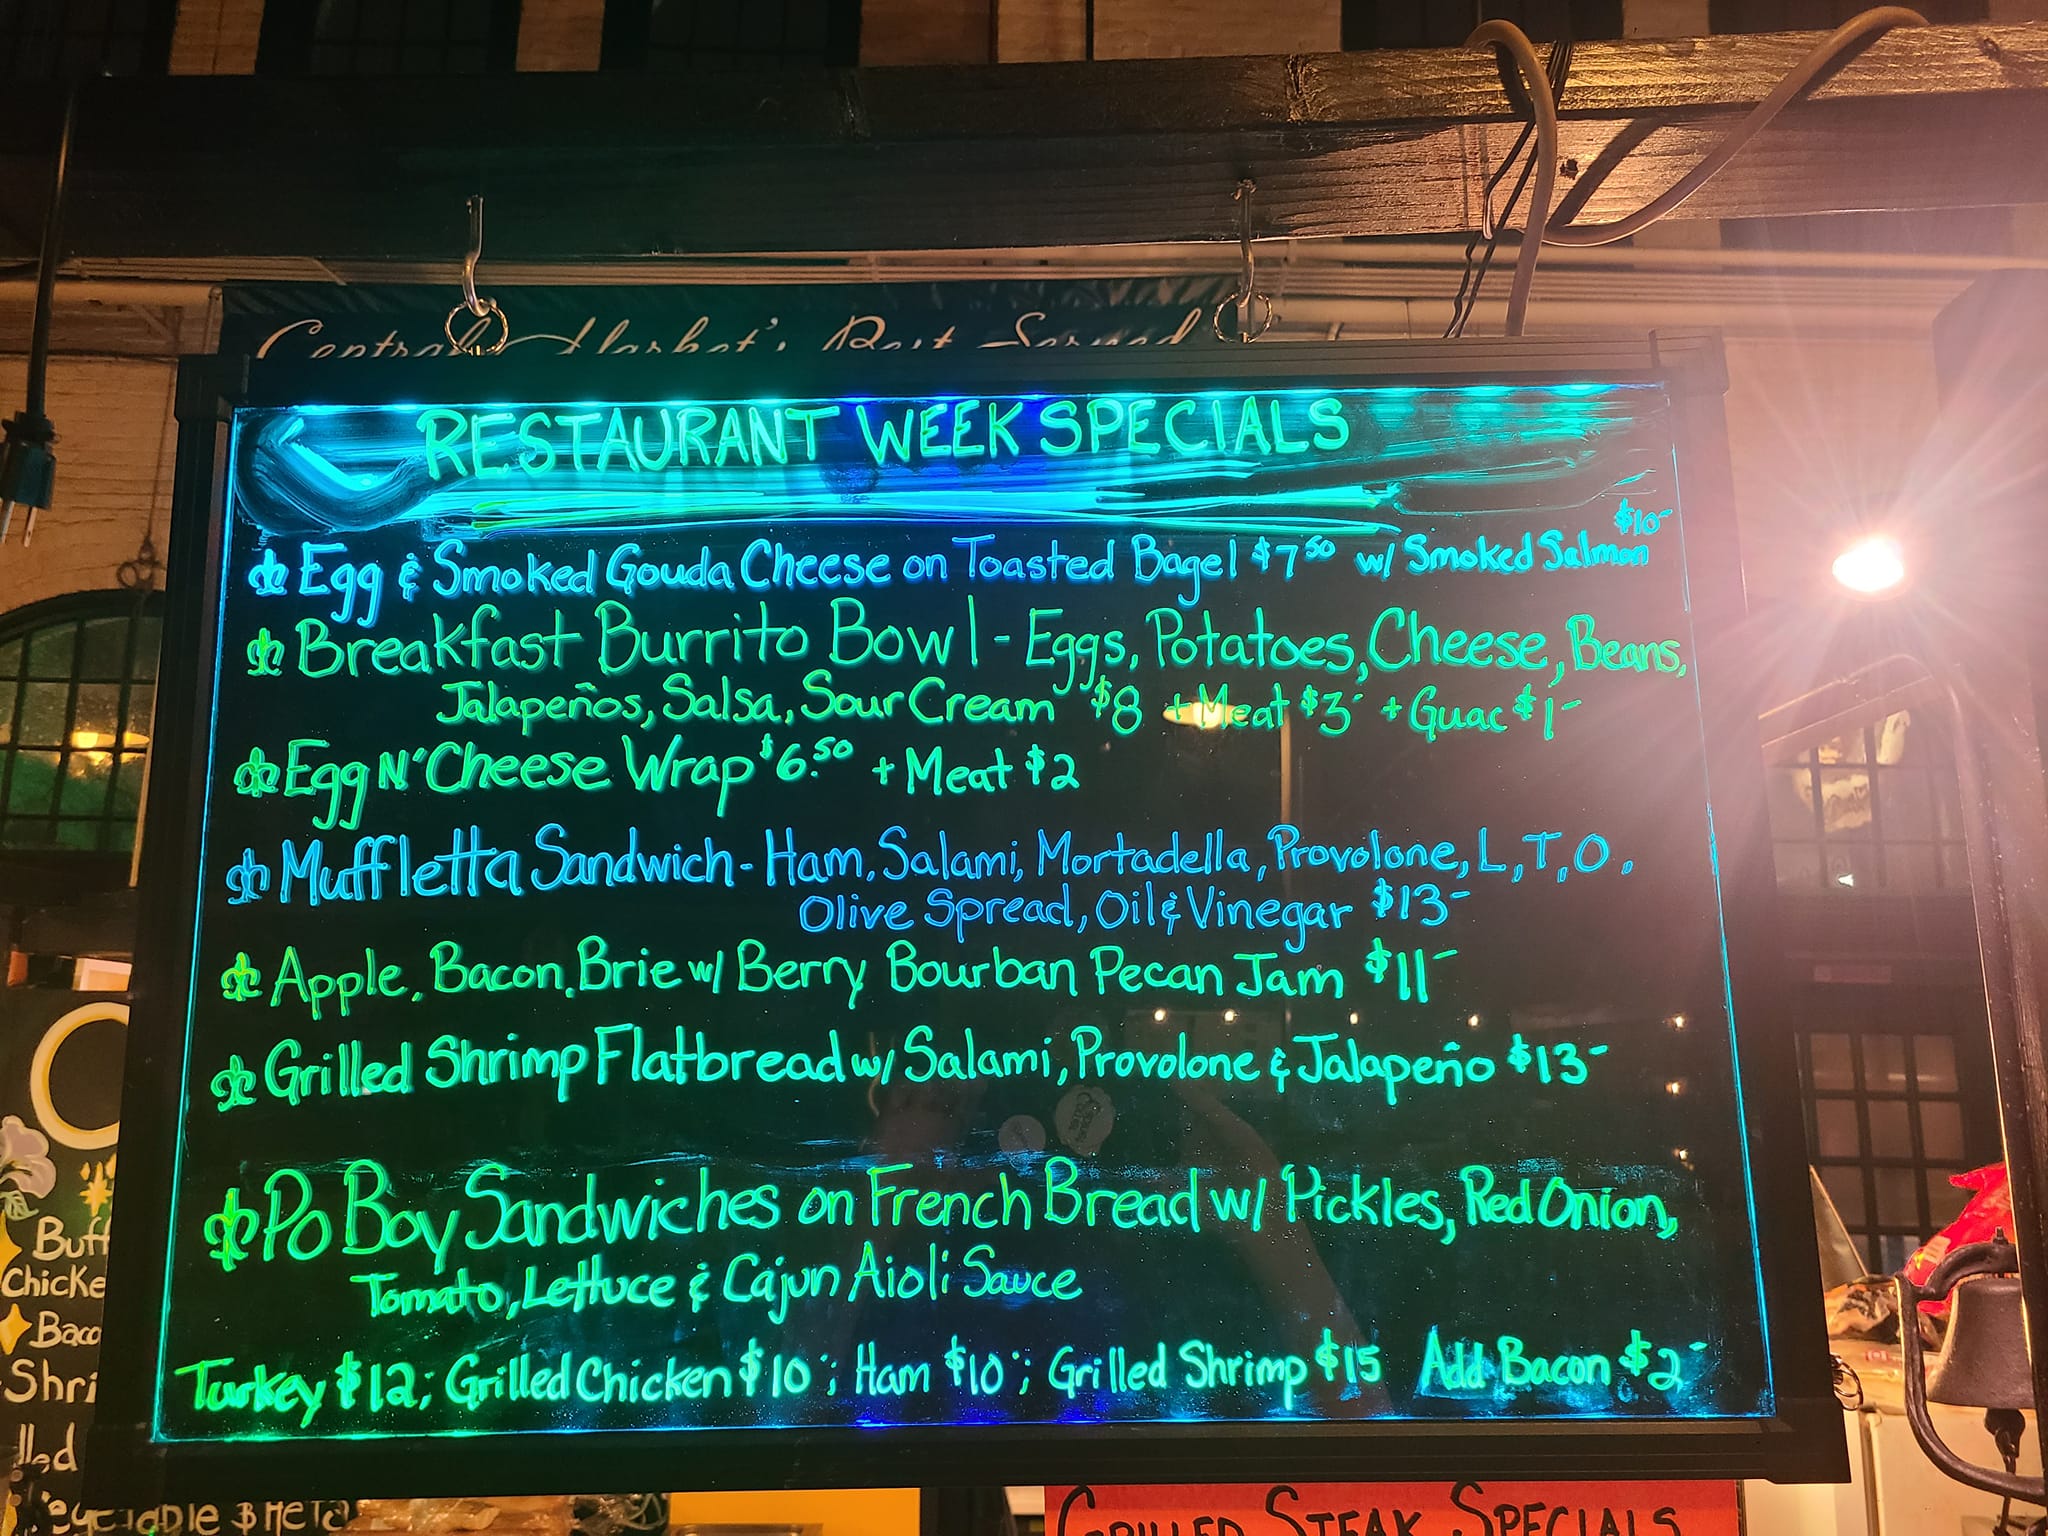 Central Market's Best Served
RESTAURANT WEEK SPECIALS
Egg & Smoked Gouda Cheese on Toasted Bagel $7.50 w/ Smoked Salmon $10-
Breakfast Burrito Bowl - Eggs, Potatoes, Cheese, Beans,
Jalapeños, Salsa, Sour Cream $8 + Meat $3- + Guac $1-
Egg N' Cheese Wrap $6.50 + Meat $2
Muffletta Sandwich - Ham, Salami, Mortadella, Provolone, L, T, O,
Olive Spread, Oil & Vinegar $13-
Apple, Bacon, Brie w/ Berry Bourban Pecan Jam $11-
Grilled Shrimp Flatbread w/ Salami, Provolone & Jalapeño $13-
Po Boy Sandwiches on French Bread w/ Pickles, Red Onion,
Tomato, Lettuce & Cajun Aioli Sauce
Turkey $12; Grilled Chicken $10-; Ham $10-; Grilled Shrimp $15 Add Bacon $2-
Buff
Chicke
Baco
Shri
lled
egetable $
GRILLED STEAK SPECIALS